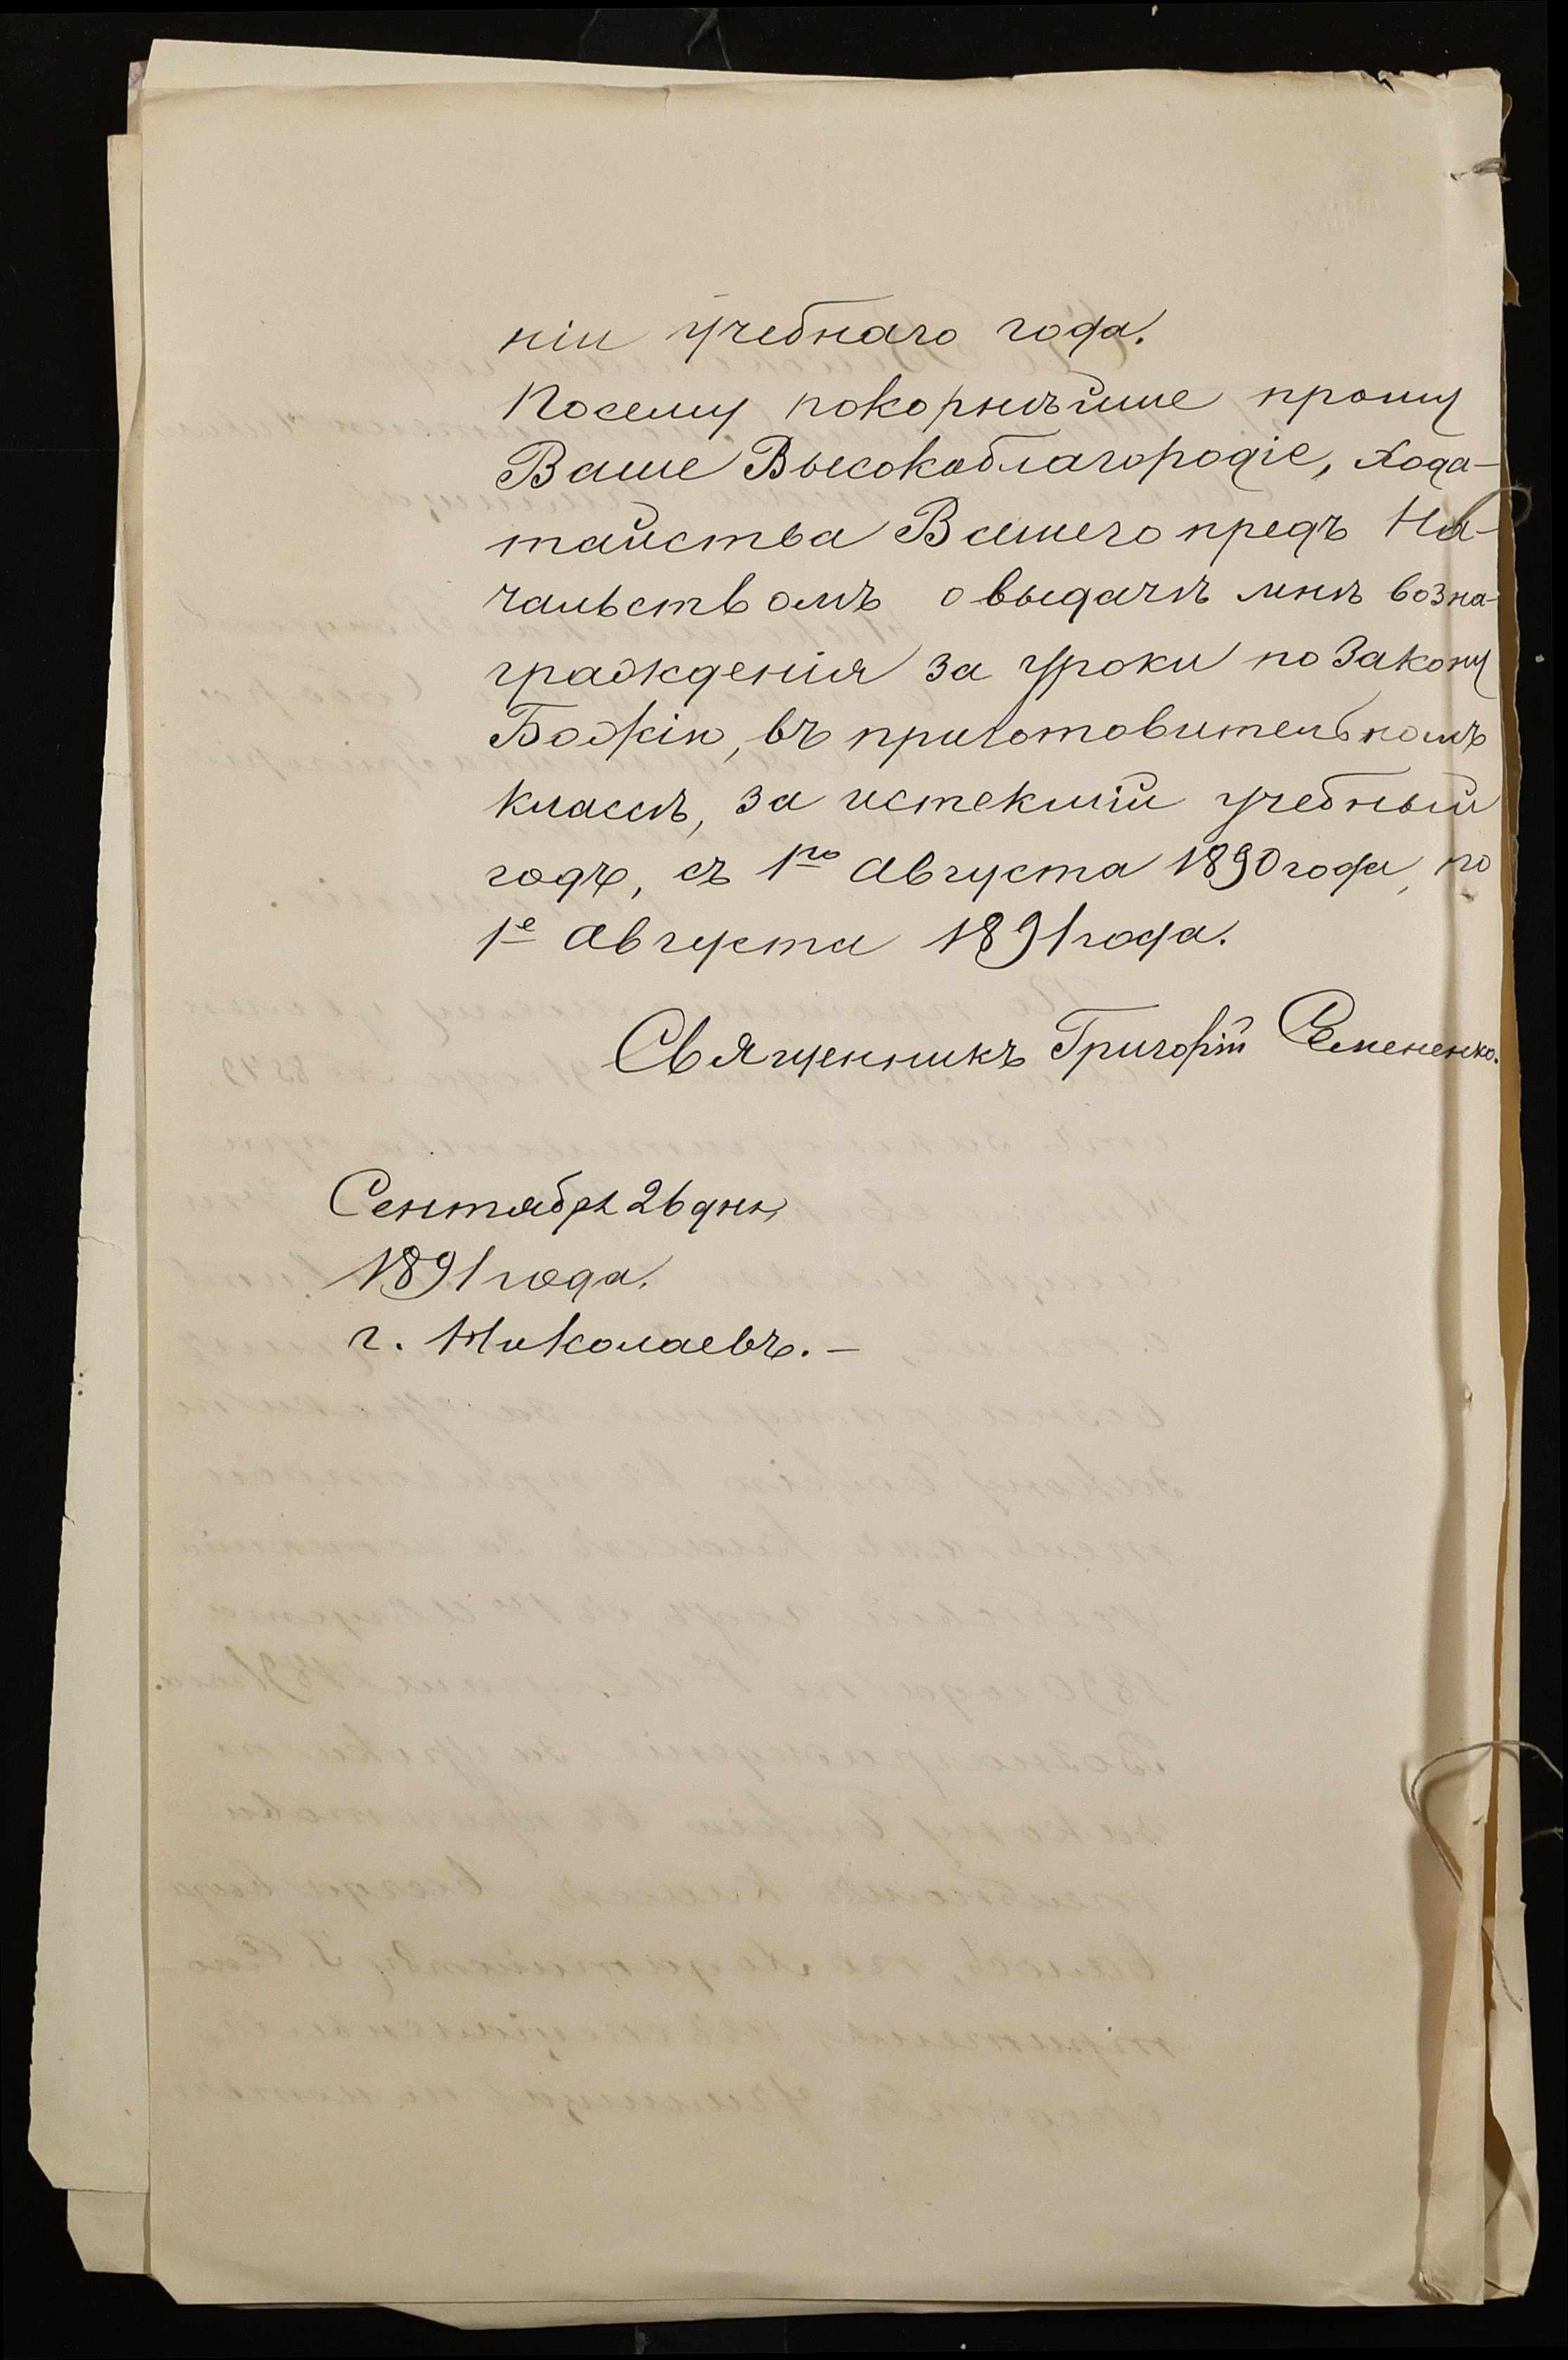 ніи учебнаго года.
Посему покорнѣйше прошу
Ваше Высокоблагородіе, хода-
тайства Вашего предъ На-
чальствомъ о выдачѣ мнѣ возна-
гражденія за уроки по Закону
Божію, въ приготовительномъ
классѣ, за истекшій учебный
годъ, съ 1го Августа 1890 года, по
1е Августа 1891 года.
Священникъ Григорій Семененко.
Сентября 26 дня,
1891 года.
г. Николаевъ. –